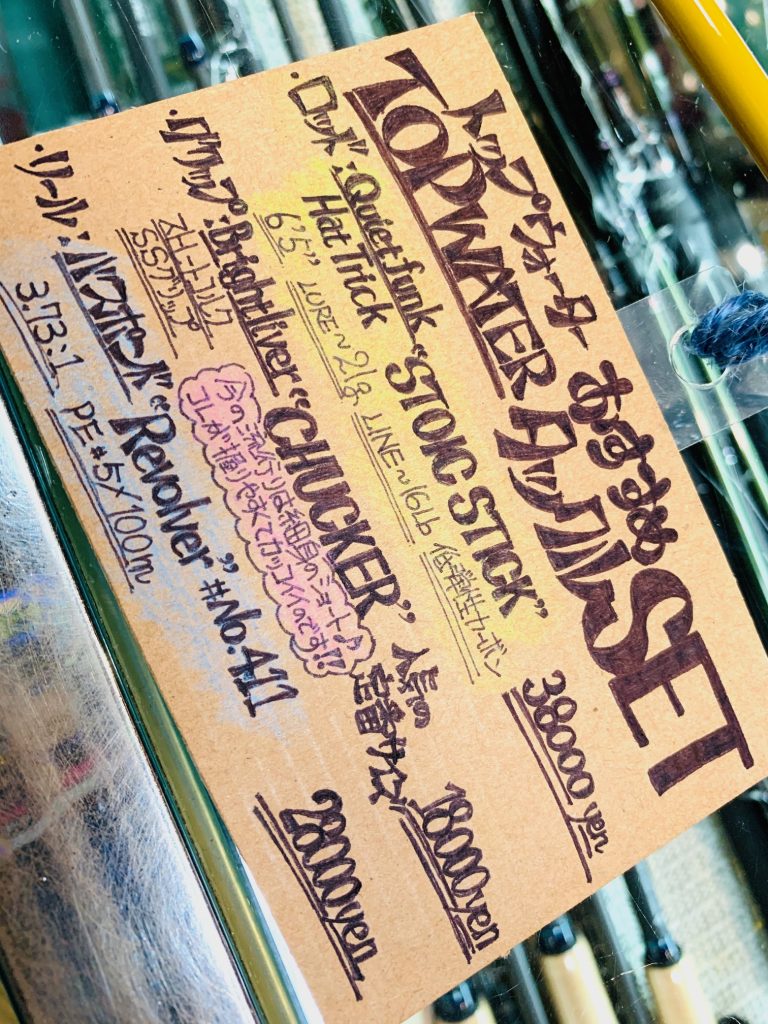 トップウォーター おすすめ
TOPWATER タックルSET
・ロッド:Quiet funk "STOIC STICK" 38000yen
Hat Trick
6'5" LURE~21g LINE~16Lb 低弾性カーボン
・グリップ:Brightliver "CHUCKER" 人気の 18000yen
ストレートコルク 定番サイズ!
SSグリップ
今の流行りは細身のショート♪
コレが握りやすくてカッコイイのです!?
・リール:バスポンド "Revolver" #No.411 28000yen
3.73:1 PE#5/100m